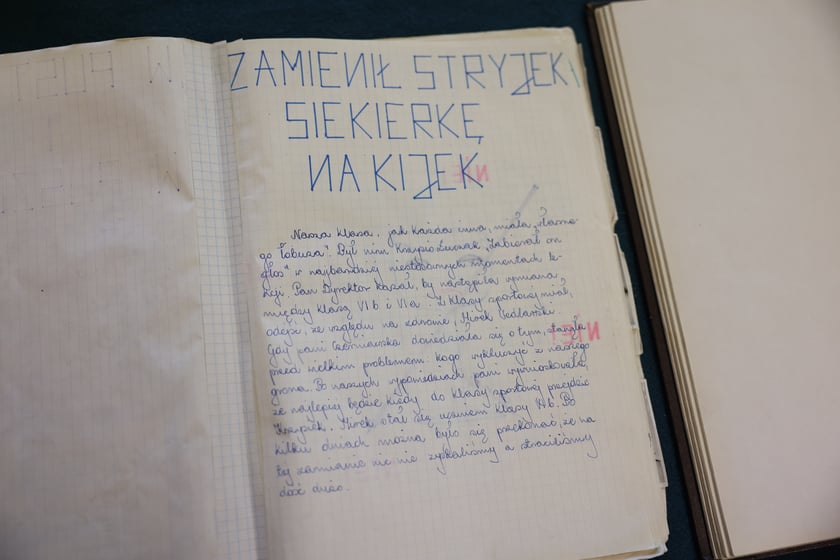 ZAMIENIŁ STRYJEK
SIEKIERKĘ
NA KIJEK
Nasza klasa, jak każda inna, miała własne-
go "łobuza". Był nim Krzysio Zabierał on
głos" w najbardziej niestosownych momentach le-
kcji. Pan Dyrektor kazał, by nastąpiła wymiana
między klasą VI b i VI a. Z klasy sportowej miał,
odejść, ze względu na zdrowie, Mirek Jedlański.
Gdy pani dowiedziała się o tym, stanęła
przed wielkim problemem: kogo wykluczyć z naszego
grona. Po naszych wypowiedziach pani wywnioskowała,
że najlepiej będzie kiedy do klasy sportowej przejdzie
Krzysiek. Mirek stał się uczniem klasy VI b. Po
kilku dniach można było się przekonać, że na
tej zamianie nic nie zyskaliśmy a straciliśmy
dość dużo.